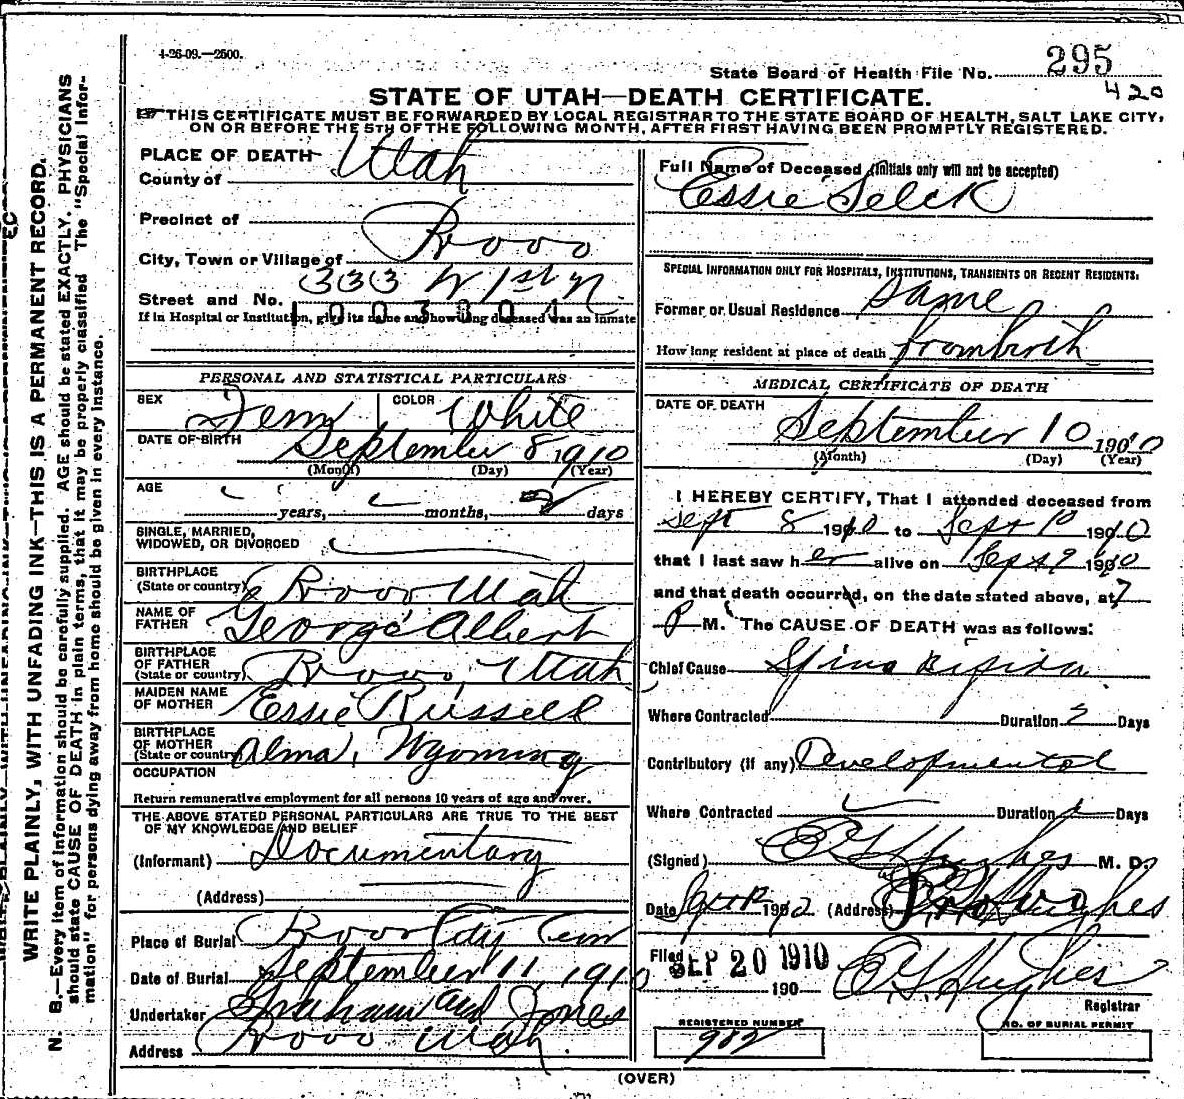 4-26-09.—2500.
State Board of Health File No. 295
420
STATE OF UTAH—DEATH CERTIFICATE.
THIS CERTIFICATE MUST BE FORWARDED BY LOCAL REGISTRAR TO THE STATE BOARD OF HEALTH, SALT LAKE CITY,
ON OR BEFORE THE 5TH OF THE FOLLOWING MONTH, AFTER FIRST HAVING BEEN PROMPTLY REGISTERED.
WRITE PLAINLY, WITH UNFADING INK—THIS IS A PERMANENT RECORD.
N. B.—Every item of information should be carefully supplied. AGE should be stated EXACTLY. PHYSICIANS
should state CAUSE OF DEATH in plain terms, that it may be properly classified. The "Special Infor-
mation" for persons dying away from home should be given in every instance.
PLACE OF DEATH
County of Utah
Precinct of
City, Town or Village of Provo
Street and No. 333 W 1st N
1003804
If in Hospital or Institution, give its name and how long deceased was an inmate
PERSONAL AND STATISTICAL PARTICULARS
SEX Fem COLOR White
DATE OF BIRTH September 8, 1910
(Month) (Day) (Year)
AGE years, months, 2 days
SINGLE, MARRIED,
WIDOWED, OR DIVORCED
BIRTHPLACE
(State or country) Provo Utah
NAME OF
FATHER George Albert
BIRTHPLACE
OF FATHER
(State or country) Provo, Utah
MAIDEN NAME
OF MOTHER Essie Russell
BIRTHPLACE
OF MOTHER
(State or country) Alma, Wyoming
OCCUPATION
Return remunerative employment for all persons 10 years of age and over.
THE ABOVE STATED PERSONAL PARTICULARS ARE TRUE TO THE BEST
OF MY KNOWLEDGE AND BELIEF
(Informant) Documentary
(Address)
Place of Burial Provo City Cem
Date of Burial September 11, 1910
Undertaker Graham and Jones
Address Provo Utah
Full Name of Deceased (initials only will not be accepted)
Essie Selck
SPECIAL INFORMATION ONLY FOR HOSPITALS, INSTITUTIONS, TRANSIENTS OR RECENT RESIDENTS.
Former or Usual Residence Same
How long resident at place of death from birth
MEDICAL CERTIFICATE OF DEATH
DATE OF DEATH
September 10 1910
(Month) (Day) (Year)
I HEREBY CERTIFY, That I attended deceased from
Sept 8 1910 to Sept 10 1910
that I last saw her alive on Sept 9 1910
and that death occurred, on the date stated above, at 7
P M. The CAUSE OF DEATH was as follows:
Chief Cause Spina Bifida
Where Contracted Duration 2 Days
Contributory (if any) Developmental
Where Contracted Duration Days
(Signed) Hughes M. D.
Date 1910 (Address) Provo
Filed SEP 20 1910
190 Hughes
Registrar
REGISTERED NUMBER
982
NO. OF BURIAL PERMIT
(OVER)